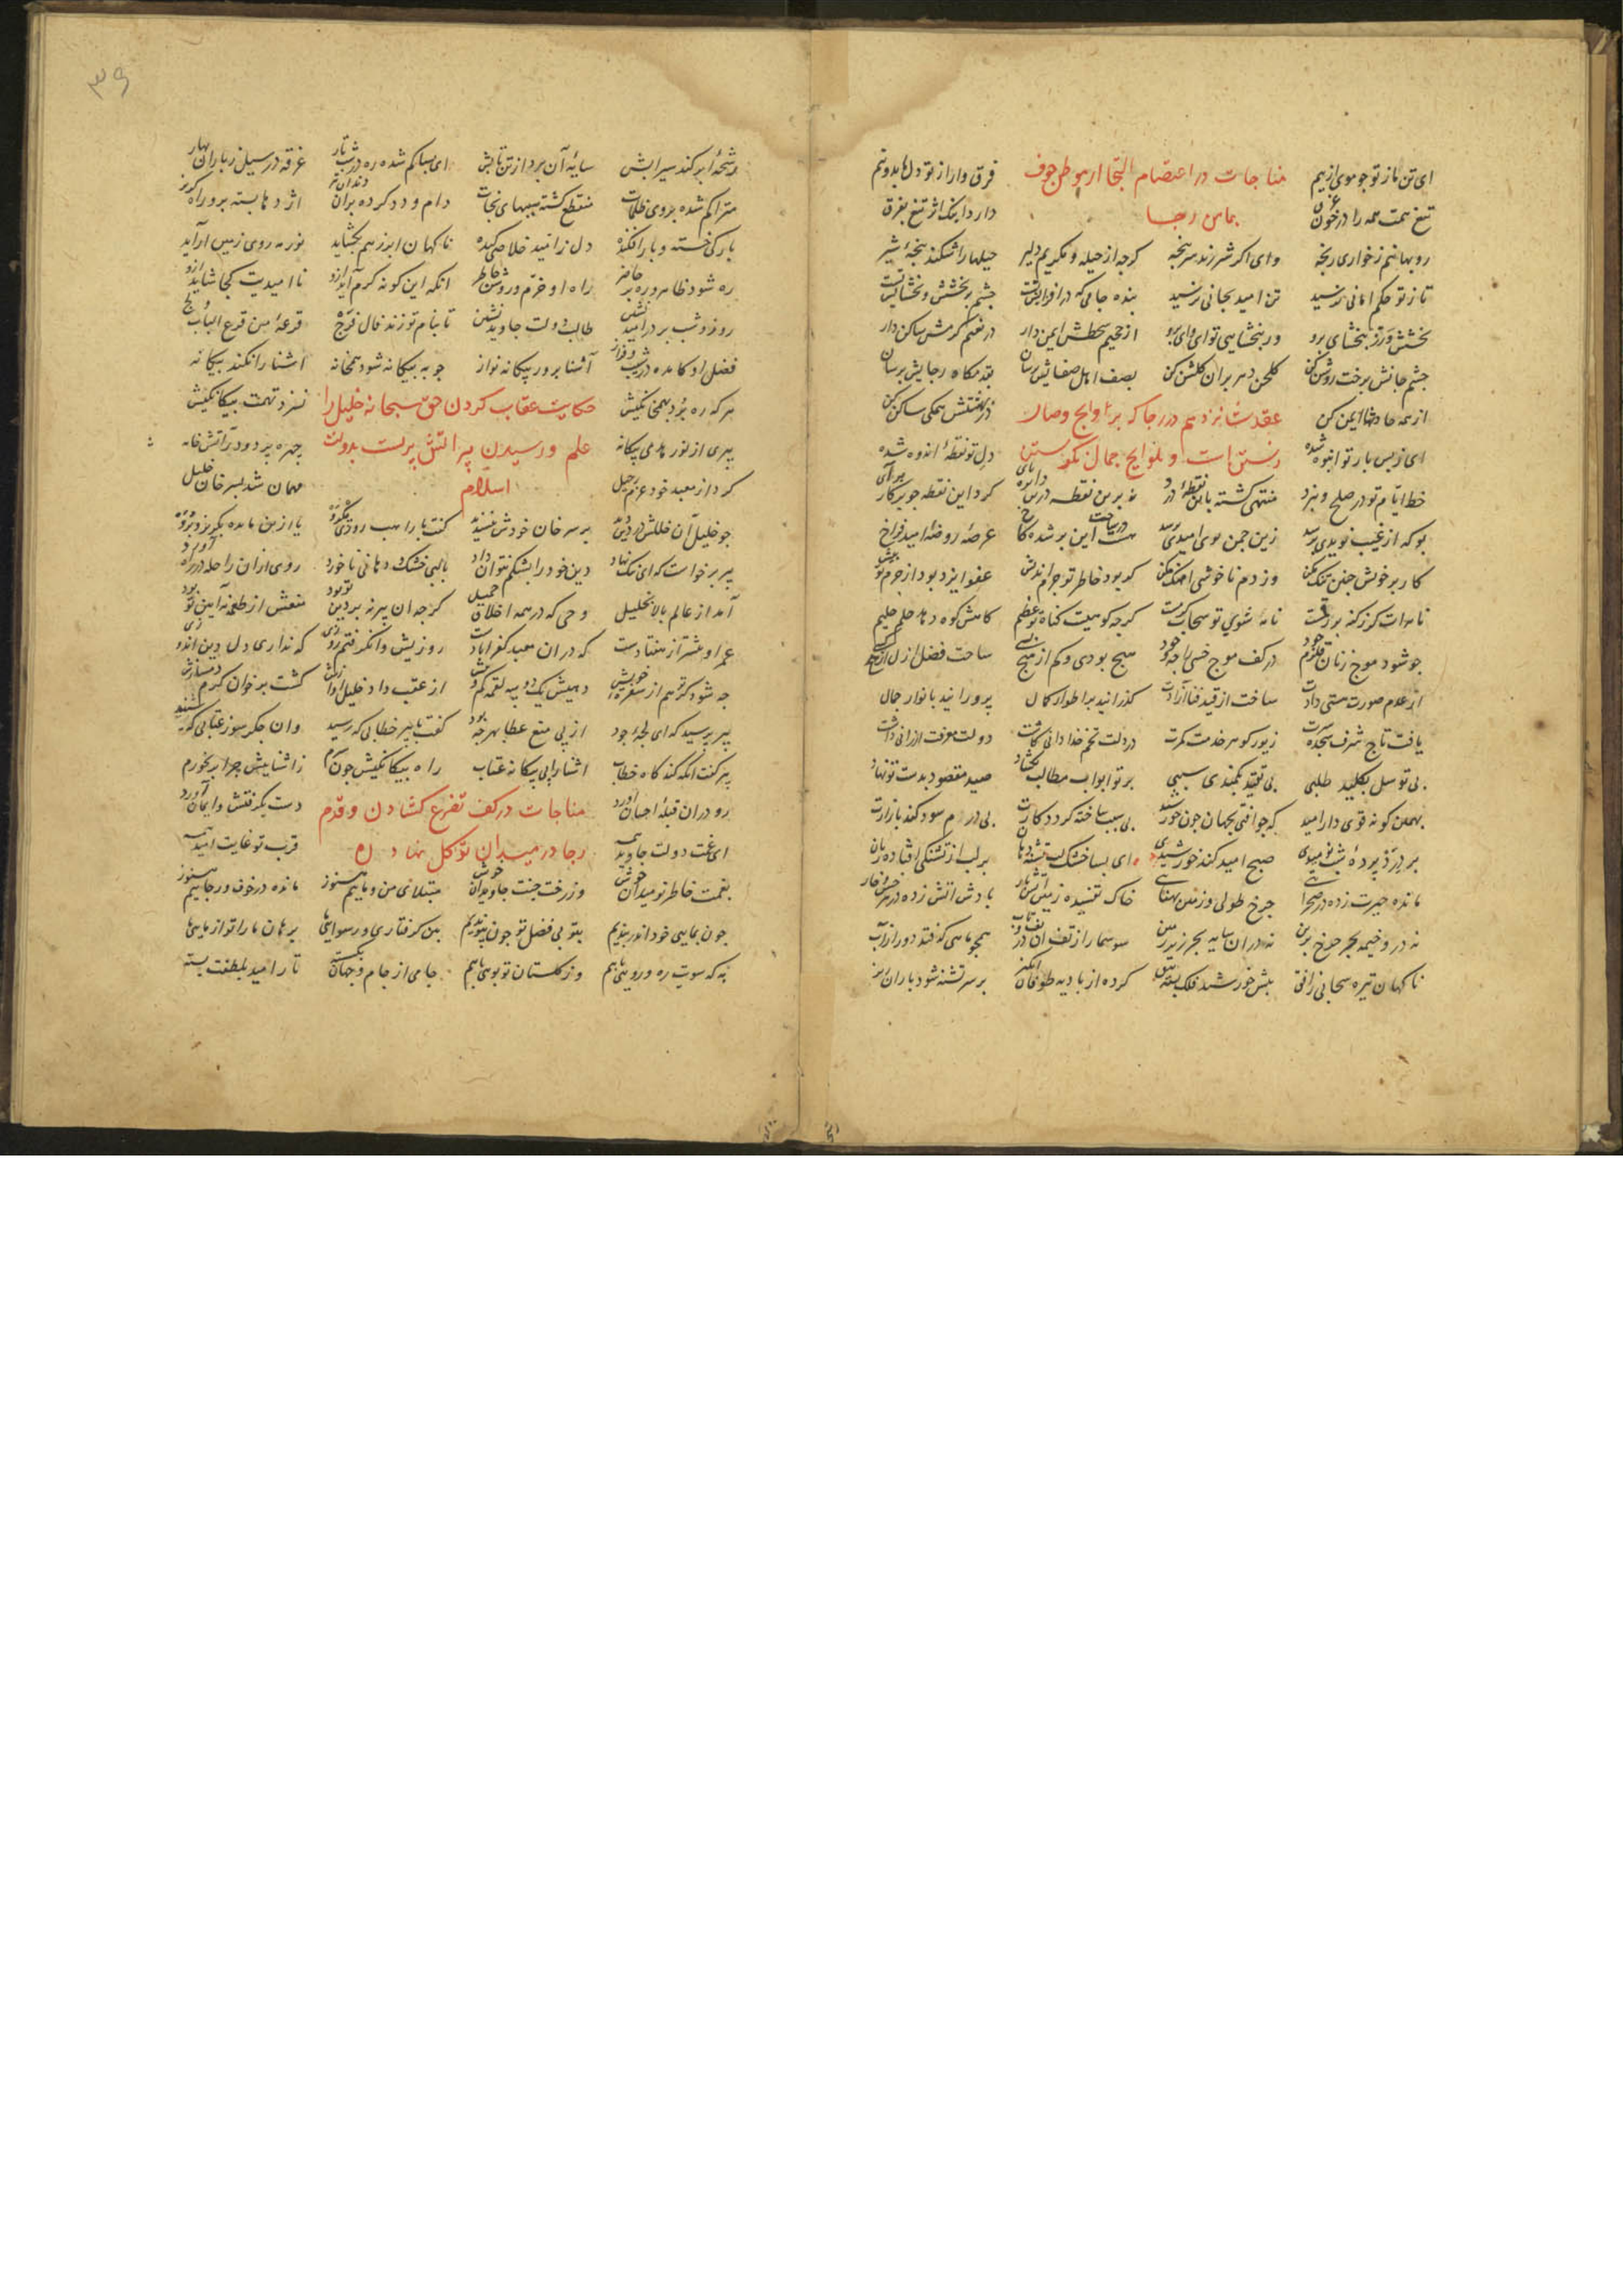 ای تن ما ز تو جو موی از بیم
مناجات در اعتصام التجا از موطن خوف
فرق وار از تو دل ما بدو نیم
تیغ همت همه را در خون غرق
بمامن رجا
دارد اینک اثر تیغ بفرق
روبهانیم ز خواری رنجه وای اکر شیر زند سرپنجه کرجه از حیله و مکریم دلیر حیلها را شکند پنجهٔ شیر
تا ز تو حکم امانی نرسید تن امید بجانی نرسید بنده جامی که در افزایش تست جشم بر بخشش و بخشایش تست
بخشش آور ز ببخشای برو ور نبخشایی تو ای وای برو از جحیم سخطش ایمن دار در نعیم کرمش ساکن دار
جشم جانش برخت روشن کن کلخن دهر بر آن کلشن کن بصف اهل صفایش برسان بقدمکاه رجایش برسان
از همه حادثها ایمن کن
عقد شانزدهم در رجا که بر لوایح وصال
در بهشتش همکی ساکن کن
ای ز بس بار تو انبوه شده
زیستن است و بلوایح جمال نکریستن
دل تو نقطهٔ اندوه شده
خط ایام تو در صلح و نبرد منتهی کشته باین نقطهٔ درد نه برین نقطه درین دایره پای کرد این نقطه جو پرکار برآی
بو که از غیب نویدی برسد زین جمن بوی امیدی برسد هست این بر شده کاخ عرصهٔ روضهٔ امید فراخ
کار بر خویش جنین تنک مکن وز دم ناخوشی آهنک مکن کر بود خاطر تو جرم اندیش عفو ایزد بود از جرم تو بیش
نامه ات کر ز کنه پر رقمست نامه شوی تو سحاب کرمست کرجه کوهیست کناه تو عظیم کاهش کوه دهد حلم حلیم
جو شود موج زنان قلزم جود در کف موج خسی را جه وجود هیچ بودی و کم از هیچ بسی ساخت فضل ازل از هیچ کسی
از عدم صورت هستی دادت ساخت از قید فنا آزادت کذرانید بر اطوار کمال پرورانید بانوار جمال
یافت تاج شرف سجده سرت زیور کوهر خدمت کمرت در دلت تخم خدا دانی کاشت دولت معرفت ارزانی داشت
بی توسل بکلید طلبی بی تقید بکمند سببی بر تو ابواب مطالب بکشاد صید مقصود بدست تو نهاد
بهمین کونه قوی دار امید که جو افتی بجهان جون خورشید بی سبب ساخته کردد کارت بی درم سود کند بازارت
بر درد پردهٔ شب نومیدی صبح امید کند خورشیدی ای بسا خشک لب تشنه دهان بر لب از تشنکی افتاده زبان
مانده حیرت زده در صحرایی جرخ طولی و زمین پهنایی خاک تفسیده زمین آتش بار بادش آتش زده در هر خس و خار
نه درو خیمه بجز جرخ برین نه در آن سایه بجز زیر زمین سوسمار از تف آن در تف و تاب همجو ماهی که فتد دور از آب
ناکهان تیره سحابی ز افق پیش خورشید فلک بسته تتق کرده از بادیه طوفان انکیز بر سر تشنه شود باران ریز
۳۹
رشحهٔ ابر کند سیرابش سایهٔ آن برد از تن تابش ای بسا کم شده ره در شب تار غرقه در سیل ز باران بهار
متراکم شده بر وی ظلمات منقطع کشته سببهای نجات دام و دد کرده بر آن دندان تیز اژدها بسته برو راه کریز
بارکی خسته و بار افکنده دل ز امید خلاصی کنده ناکهان ابر ز هم بکشاید نور مه روی زمین آراید
ره شود ظاهر و رهبر حاضر راه او خرم و روشن خاطر آنکه این کونه کرم آید ازو ناامیدیت کجا شاید ازو
روز و شب بر در امید نشین طالب دولت جاوید نشین تا بنام تو زند فال فرج قرعهٔ من قرع الباب ولج
فضل او کامده در شیب و فراز آشنا پرور و بیکانه نواز جو به بیکانه شود همخانه آشنا را نکند بیکانه
هر که ره برد بهمخانکیش
حکایت عتاب کردن حق سبحانه خلیل را
نسزد تهمت بیکانکیش
پیری از نور هدی بیکانه
علم و رسیدن پیر آتش پرست بدولت
جهره پر دود ز آتش خانه
کرد از معبد خود عزم رحیل
اسلام
مهمان شد بسر خان خلیل
جون خلیل آن خللش در دین دید بر سر خان خودش نپسندید کفت با راهب روزی بکرو یا ازین مایده بکریز و برو
پیر برخواست که ای نیک نهاد دین خود را بشکم نتوان داد با لبی خشک و دهانی ناخورد روی از آن راحله در راه آورد
آمد از عالم بالا بخلیل وحی که در همه اخلاق جمیل کرجه آن پیر نه بر دین تو بود منعش از طعمه نه آیین تو بود
عمر او بیشتر از هفتادست که در آن معبد کفر آبادست روزیش وا نکرفتم روزی که نداری دل دین اندوزی
جه شود کر تو هم از سفرهٔ خویش دهیش یک دو سه لقمه کم و بیش از عقب داد خلیل آوازش کشت بر خوان کرم دمسازش
پیر پرسید که ای لجهٔ جود از پی منع عطا بهر جه بود کفت با پیر خطابی که رسید وان جکر سوز عتابی که شنید
پیر کفت آنکه کند کاه خطاب آشنا را پی بیکانه عتاب راه بیکانکیش جون کیرم ز آشناییش جرا بر نخورم
رو در آن قبلهٔ احسان آورد
مناجات در کف تضرع کشادن و قدم
دست بکرفتش و ایمان آورد
ای غمت دولت جاوید همه
رجا در میدان توکل نهادن
قرب تو غایت امید همه
بغمت خاطر نومیدان خوش وز رخت جنت جاویدان خوش مبتلای من و ماییم هنوز مانده در خوف و رجاییم هنوز
جون بمایی خود اندر بندیم بتو بی فضل تو جون پیوندیم بین کرفتاری و رسوایی ما برهان ما را تو از مایی ما
به که سویت ره و رویی یابیم وز کلستان تو بویی یابیم جامی از جام و جهان بکسسته تار امید بلطفت بسته